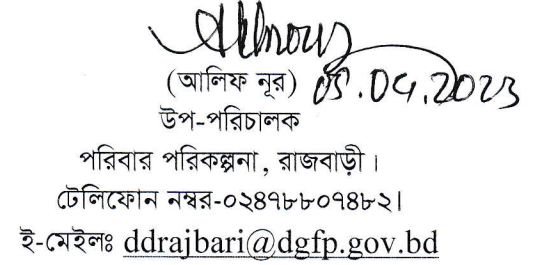 (আলিফ নূর) 05.04.2023
উপ-পরিচালক
পরিবার পরিকল্পনা, রাজবাড়ী।
টেলিফোন নম্বর-০২৪৭৮৮০৭৪৮২।
ই-মেইলঃ ddrajbari@dgfp.gov.bd